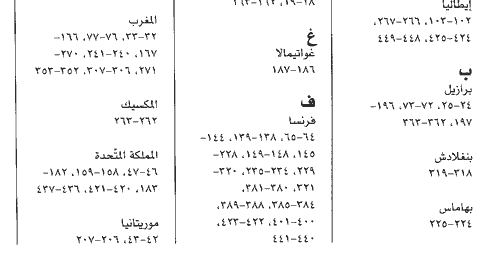 إيطاليا
١٠٢-١٠٣، ٢٦٦-٢٦٧،
٤٢٤-٤٢٥، ٤٤٨-٤٤٩
ب
برازيل
٢٤-٢٥، ٧٢-٧٣، ١٩٦-
١٩٧، ٣٦٢-٣٦٣
بنغلادش
٣١٨-٣١٩
بهاماس
٢٢٤-٢٢٥
١٨-١٩، ١٦٢-١٦٣
غ
غواتيمالا
١٨٦-١٨٧
ف
فرنسا
٦٤-٦٥، ١٣٨-١٣٩، ١٤٤-
١٤٥، ١٤٨-١٤٩، ٢٢٨-
٢٢٩، ٢٣٤-٢٣٥، ٣٢٠-
٣٢١، ٣٨٠-٣٨١،
٣٨٤-٣٨٥، ٣٨٨-٣٨٩،
٤٠٠-٤٠١، ٤٢٢-٤٢٣،
٤٤٠-٤٤١
المغرب
٣٢-٣٣، ٧٦-٧٧، ١٦٦-
١٦٧، ٢٤٠-٢٤١، ٢٧٠-
٢٧١، ٣٠٦-٣٠٧، ٣٥٢-٣٥٣
المكسيك
٢٦٢-٢٦٣
المملكة المتّحدة
٤٦-٤٧، ١٥٨-١٥٩، ١٨٢-
١٨٣، ٤٢٠-٤٢١، ٤٣٦-٤٣٧
موريتانيا
٤٢-٤٣، ٢٠٦-٢٠٧